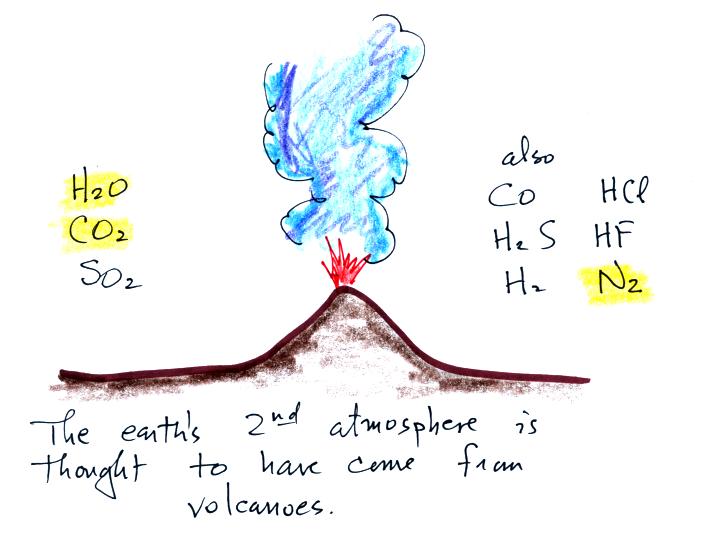 H2O
CO2
SO2
also
CO HCl
H2S HF
H2 N2
The earth's 2nd atmosphere is
thought to have come from
volcanoes.